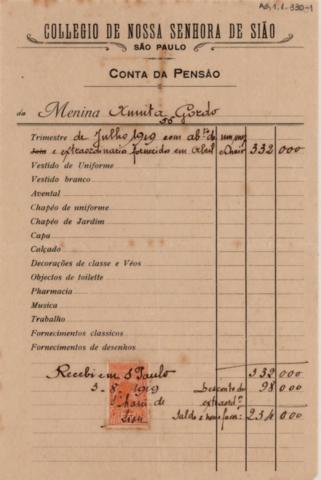 COLLEGIO DE NOSSA SENHORA DE SIÃO
SÃO PAULO
CONTA DA PENSÃO
da Menina Annita Gordo
Trimestre de Julho 1919 com ab.to de um mez
Joia e extraordinario fornecido em Abril 332 000
Vestido de Uniforme
Vestido branco
Avental
Chapéo de uniforme
Chapéo de Jardim
Capa
Calçado
Decorações de classe e Véos
Objectos de toilette
Pharmacia
Musica
Trabalho
Fornecimentos classicos
Fornecimentos de desenhos
Recebi em S Paulo 332 000
5-8-1919 Desconto do 98 000
de extraord.o
Sion Saldo a nosso favor: 234 000